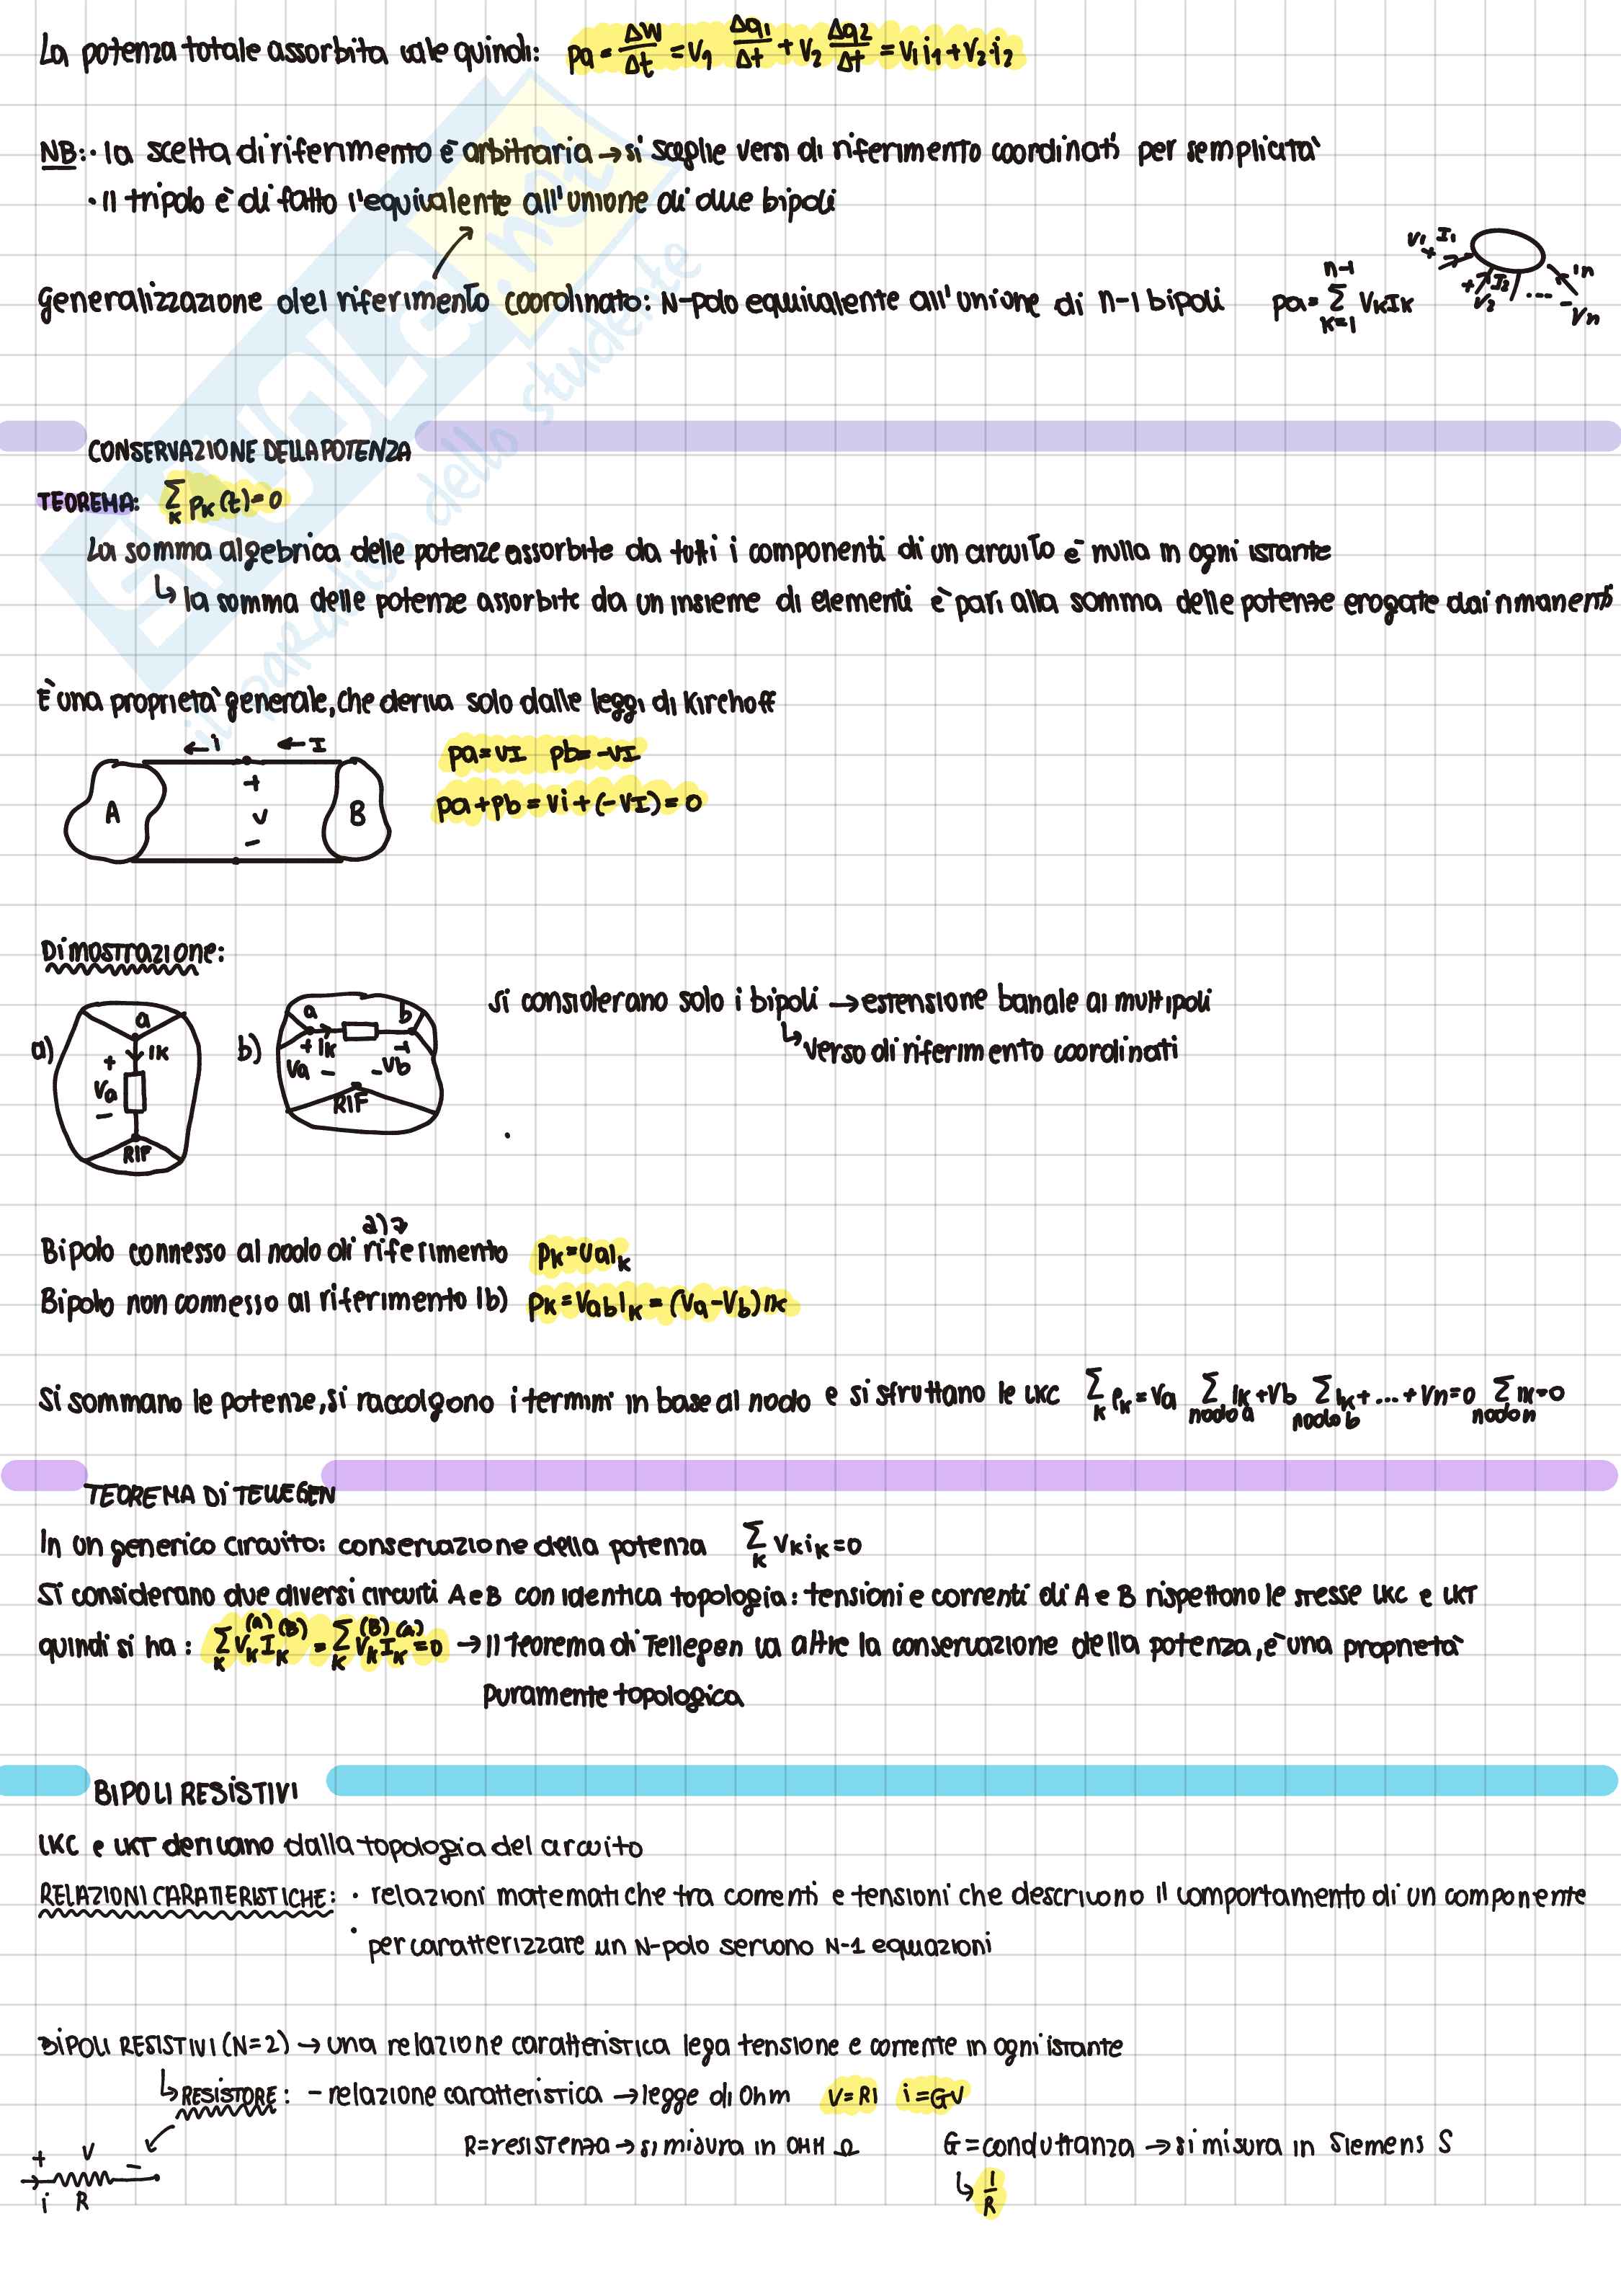 La potenza totale assorbita vale quindi: pa = ΔW/Δt = V1 Δq1/Δt + V2 Δq2/Δt = V1 i1 + V2·i2
NB: · la scelta di riferimento è arbitraria → si sceglie versi di riferimento coordinati per semplicità
· Il tripolo è di fatto l'equivalente all'unione di due bipoli
Generalizzazione del riferimento coordinato: N-polo equivalente all'unione di n-1 bipoli pa = Σ_{k=1}^{n-1} VkIk
V1 I1 + + I2 V2 .... in - Vn
CONSERVAZIONE DELLA POTENZA
TEOREMA: Σ_k pk(t)=0
La somma algebrica delle potenze assorbite da tutti i componenti di un circuito è nulla in ogni istante
↳ la somma delle potenze assorbite da un insieme di elementi è pari alla somma delle potenze erogate dai rimanenti
È una proprietà generale, che deriva solo dalle leggi di Kirchoff
← i ← I
A + V - B
pa = VI pb = -VI
pa + pb = Vi + (-VI) = 0
Dimostrazione:
a) a + ik Va - RIF
b) a b + ik - + Va - - Vb RIF
Si considerano solo i bipoli → estensione banale ai multipoli
↳ verso di riferimento coordinati
Bipolo connesso al nodo di riferimento pk = Va ik
Bipolo non connesso al riferimento (b) pk = Vab ik = (Va - Vb) ik
Si sommano le potenze, si raccolgono i termini in base al nodo e si sfruttano le LKC Σ_k Pk = Va Σ_{nodo a} ik + Vb Σ_{nodo b} ik + ... + Vn=0 Σ_{nodo n} ik=0
TEOREMA DI TELLEGEN
In un generico circuito: conservazione della potenza Σ_k Vk ik = 0
Si considerano due diversi circuiti A e B con identica topologia: tensioni e correnti di A e B rispettono le stesse LKC e LKT
quindi si ha: Σ_k Vk^(a) Ik^(B) = Σ_k Vk^(B) Ik^(a) = 0 → Il teorema di Tellegen va altre la conservazione della potenza, è una proprietà
puramente topologica
BIPOLI RESISTIVI
LKC e LKT derivano dalla topologia del circuito
RELAZIONI CARATTERISTICHE: · relazioni matematiche tra correnti e tensioni che descrivono il comportamento di un componente
· per caratterizzare un N-polo servono N-1 equazioni
BIPOLI RESISTIVI (N=2) → una relazione caratteristica lega tensione e corrente in ogni istante
↳ RESISTORE: - relazione caratteristica → legge di Ohm V=RI i=GV
R=resistenza → si misura in OHM Ω G=conduttanza → si misura in Siemens S
↳ 1/R
+ V -
i R
SKUOLA.net
il paradiso dello studente